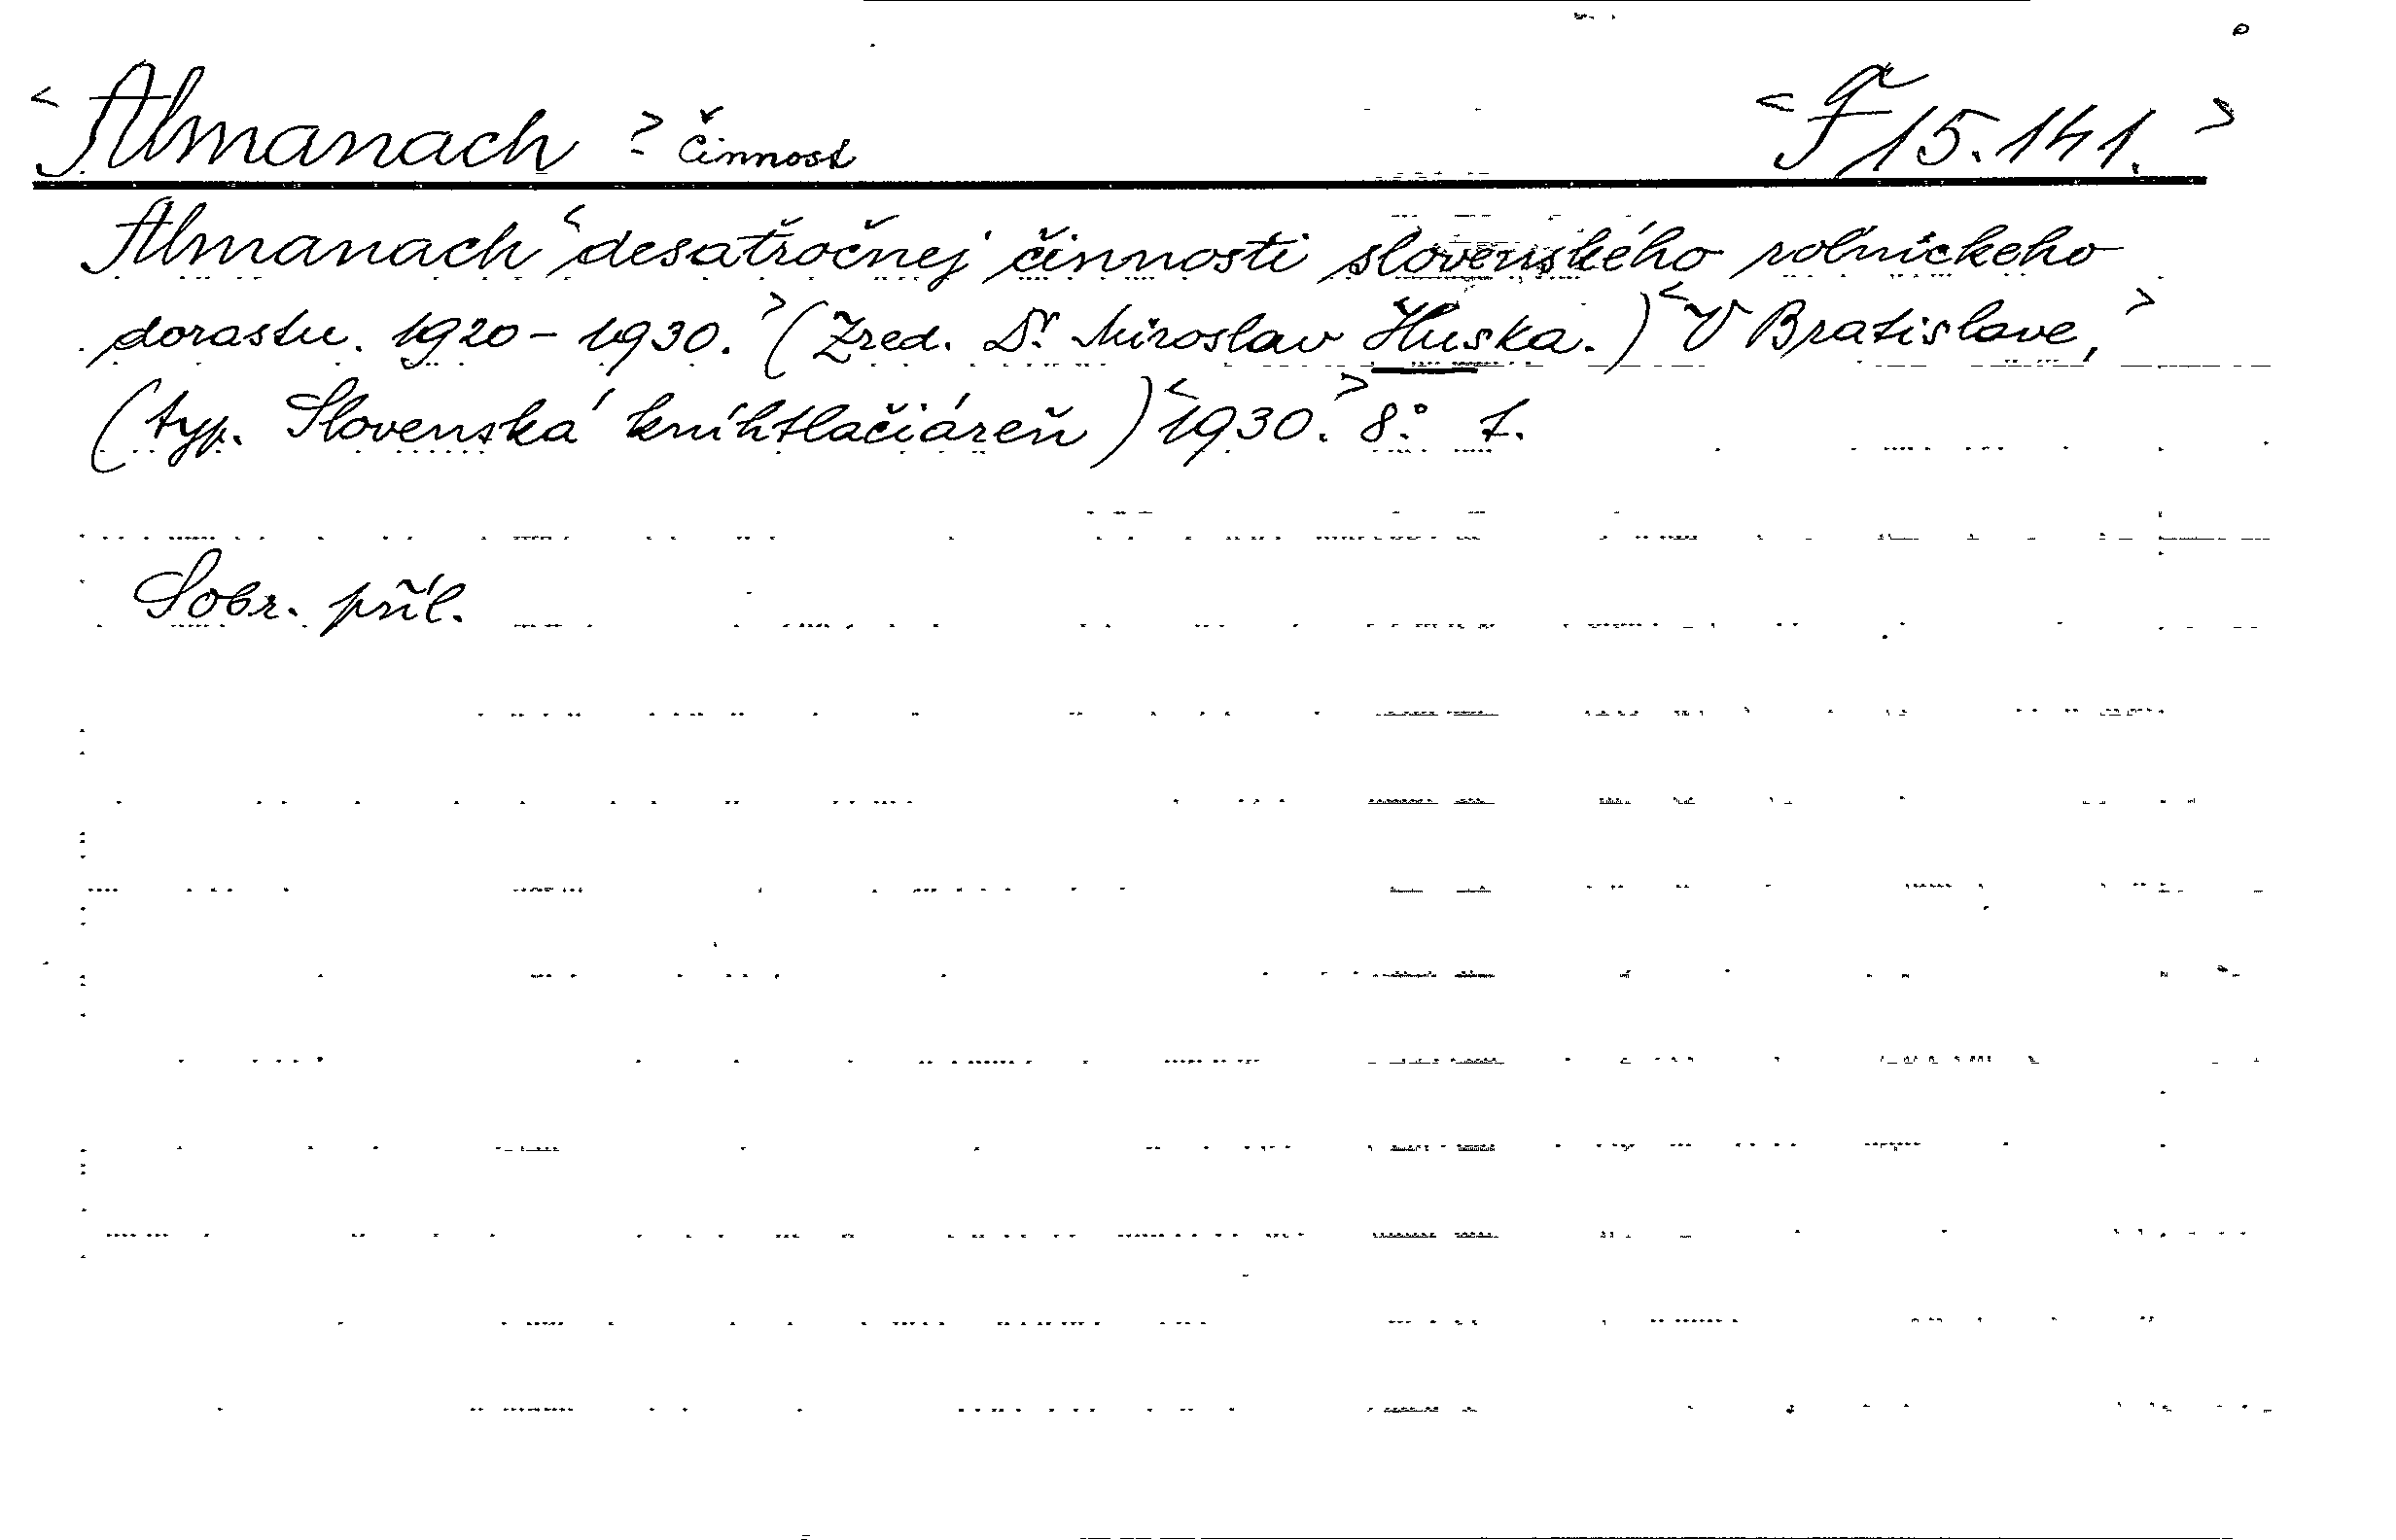 <Almanach> činnost <F 15.141.>
Almanach <desaťročnej činnosti slovenského roľníckeho
dorastu. 1920-1930.> (Zred. Dr. Miroslav Huska.) <V Bratislave,>
(typ. Slovenská kníhtlačiáreň) <1930.> 8° 1.
Sobr. příl.